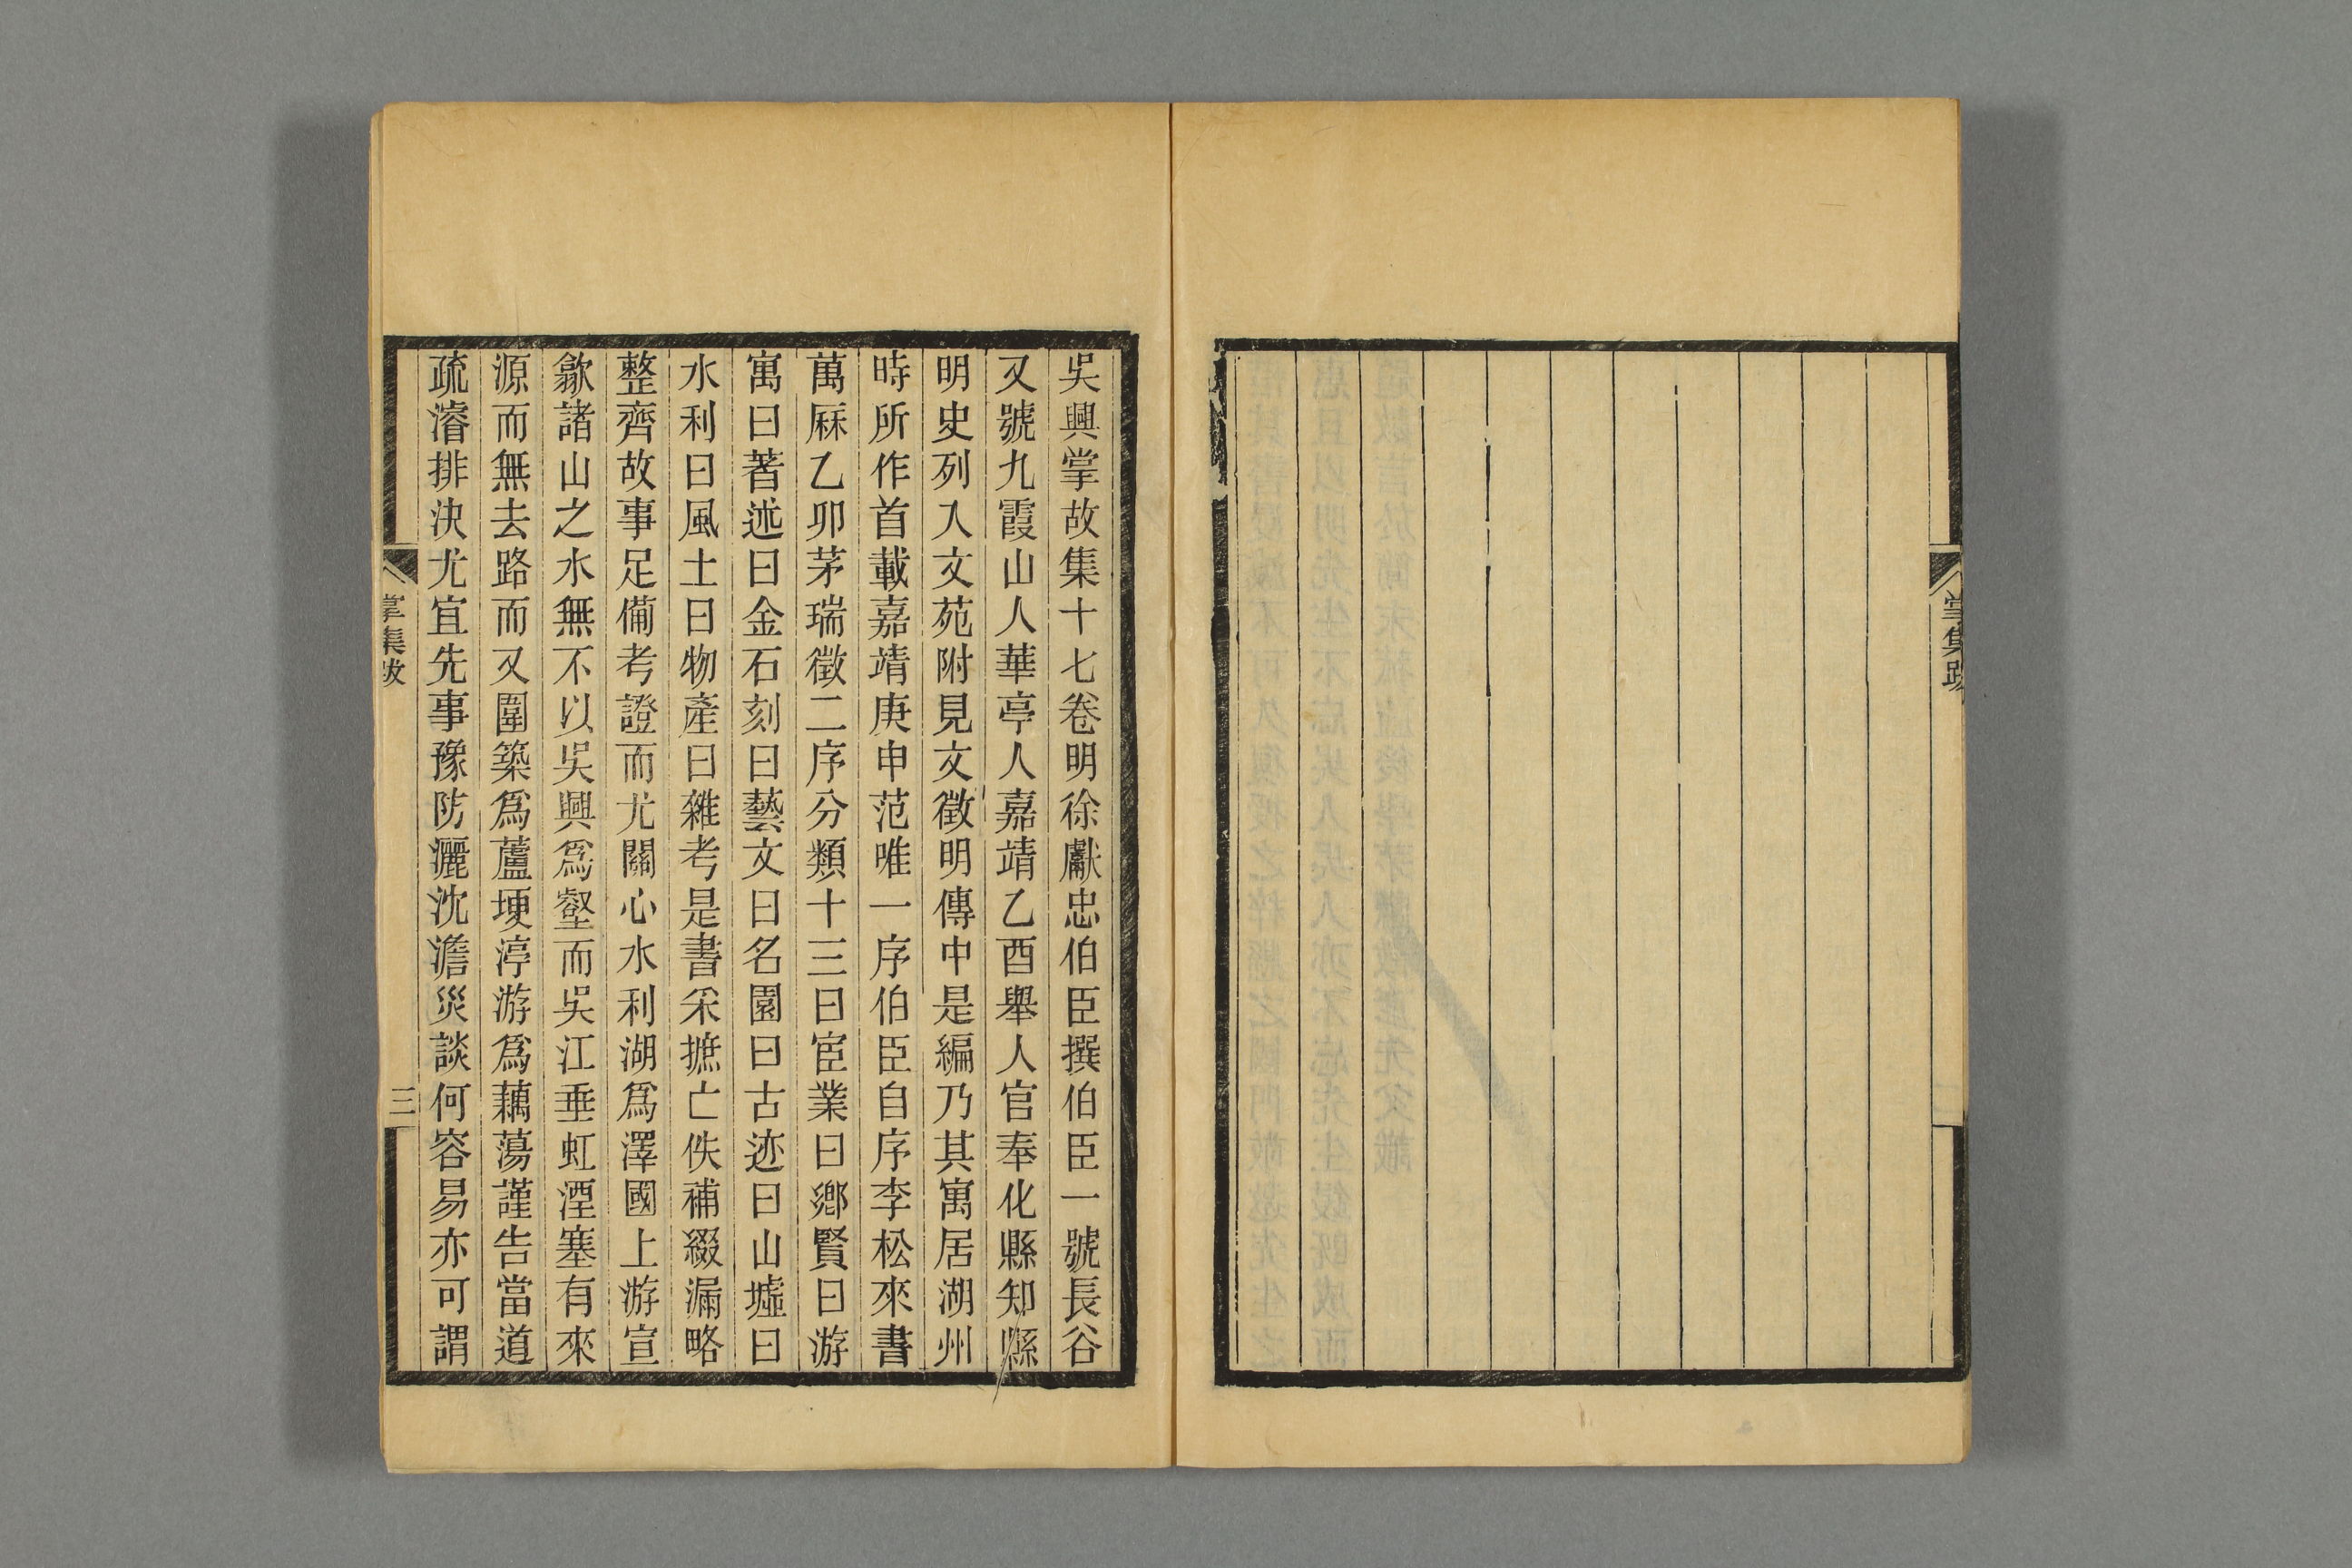 掌集跋
吳興掌故集十七卷明徐獻忠伯臣撰伯臣一號長谷
又號九霞山人華亭人嘉靖乙酉舉人官奉化縣知縣
明史列入文苑附見文徵明傳中是編乃其寓居湖州
時所作首載嘉靖庚申范唯一序伯臣自序李松來書
萬厤乙卯茅瑞徵二序分類十三曰宦業曰鄉賢曰游
寓曰著述曰金石刻曰藝文曰名園曰古迹曰山墟曰
水利曰風土曰物產曰雜考是書采摭亡佚補綴漏略
整齊故事足備考證而尤關心水利湖爲澤國上游宣
歙諸山之水無不以吳興爲壑而吳江垂虹湮塞有來
源而無去路而又圍築爲蘆埂渟游爲藕蕩謹告當道
疏濬排決尤宜先事豫防灑沈澹災談何容易亦可謂
掌集跋
三